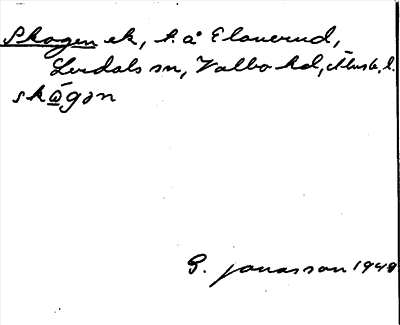 Skogen ek, t. å Elaverud,
Lerdals sn, Valbo hd, Älvsb. l.
skógən
G. Jonasson 1948